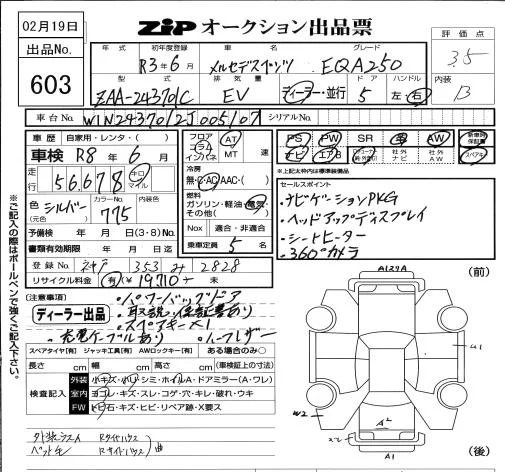 02月19日
ZIP オークション出品票
出品No.
603
年式 初年度登録 車名 グレード
R3年6月 メルセデスベンツ EQA250
型式 排気量 ドア ハンドル
ZAA-243701C EV ディーラー・並行 5 左・右
評価点
3.5
内装
B
車台No. W1N2437012J005107 シリアルNo.
車歴 自家用・レンタ・( )
車検 R8年6月
走行 56,678 キロ マイル
色(元色) シルバー カラーNo. 775 内装色
予備検 年 月 日(3・8)
書類有効期限 年 月 日迄
登録No. 353 み 2828
リサイクル料金 (有)(¥ 19,710 )・未
フロア コラム インパネ AT MT 速
冷房 無・AC・AAC・( )
燃料 ガソリン・軽油・電気・その他( )
Nox 適合・非適合
乗車定員 5 名
PS PW SR 革 AW 新車時保証書
ナビ エアB 社外ナビ 社外AW スペアキー
※上記太枠内は標準装備
セールスポイント
・ナビゲーションPKG
・ヘッドアップディスプレイ
・シートヒーター
・360°カメラ
(注意事項)
ディーラー出品
・パワーバックドア
・取説・保証書あり
・スペアキー×1
・充電ケーブルあり
スペアタイヤ[有] ジャッキ工具[有] AWロックキー[有] ある場合のみ○
長さ cm 幅 cm 高さ cm (車検証上の寸法)
検査記入
外装 小キズ・小凹・シミ・ホイルA・ドアミラー(A・ワレ)
室内 ヨゴレ・キズ・スレ・コゲ・穴・キレ・破れ・ウキ
FW トビ石・キズ・ヒビ・リペア跡・X要ス
(前)
A1
W2
A2
A1
(後)
※ご記入の際はボールペンで強くご記入下さい。